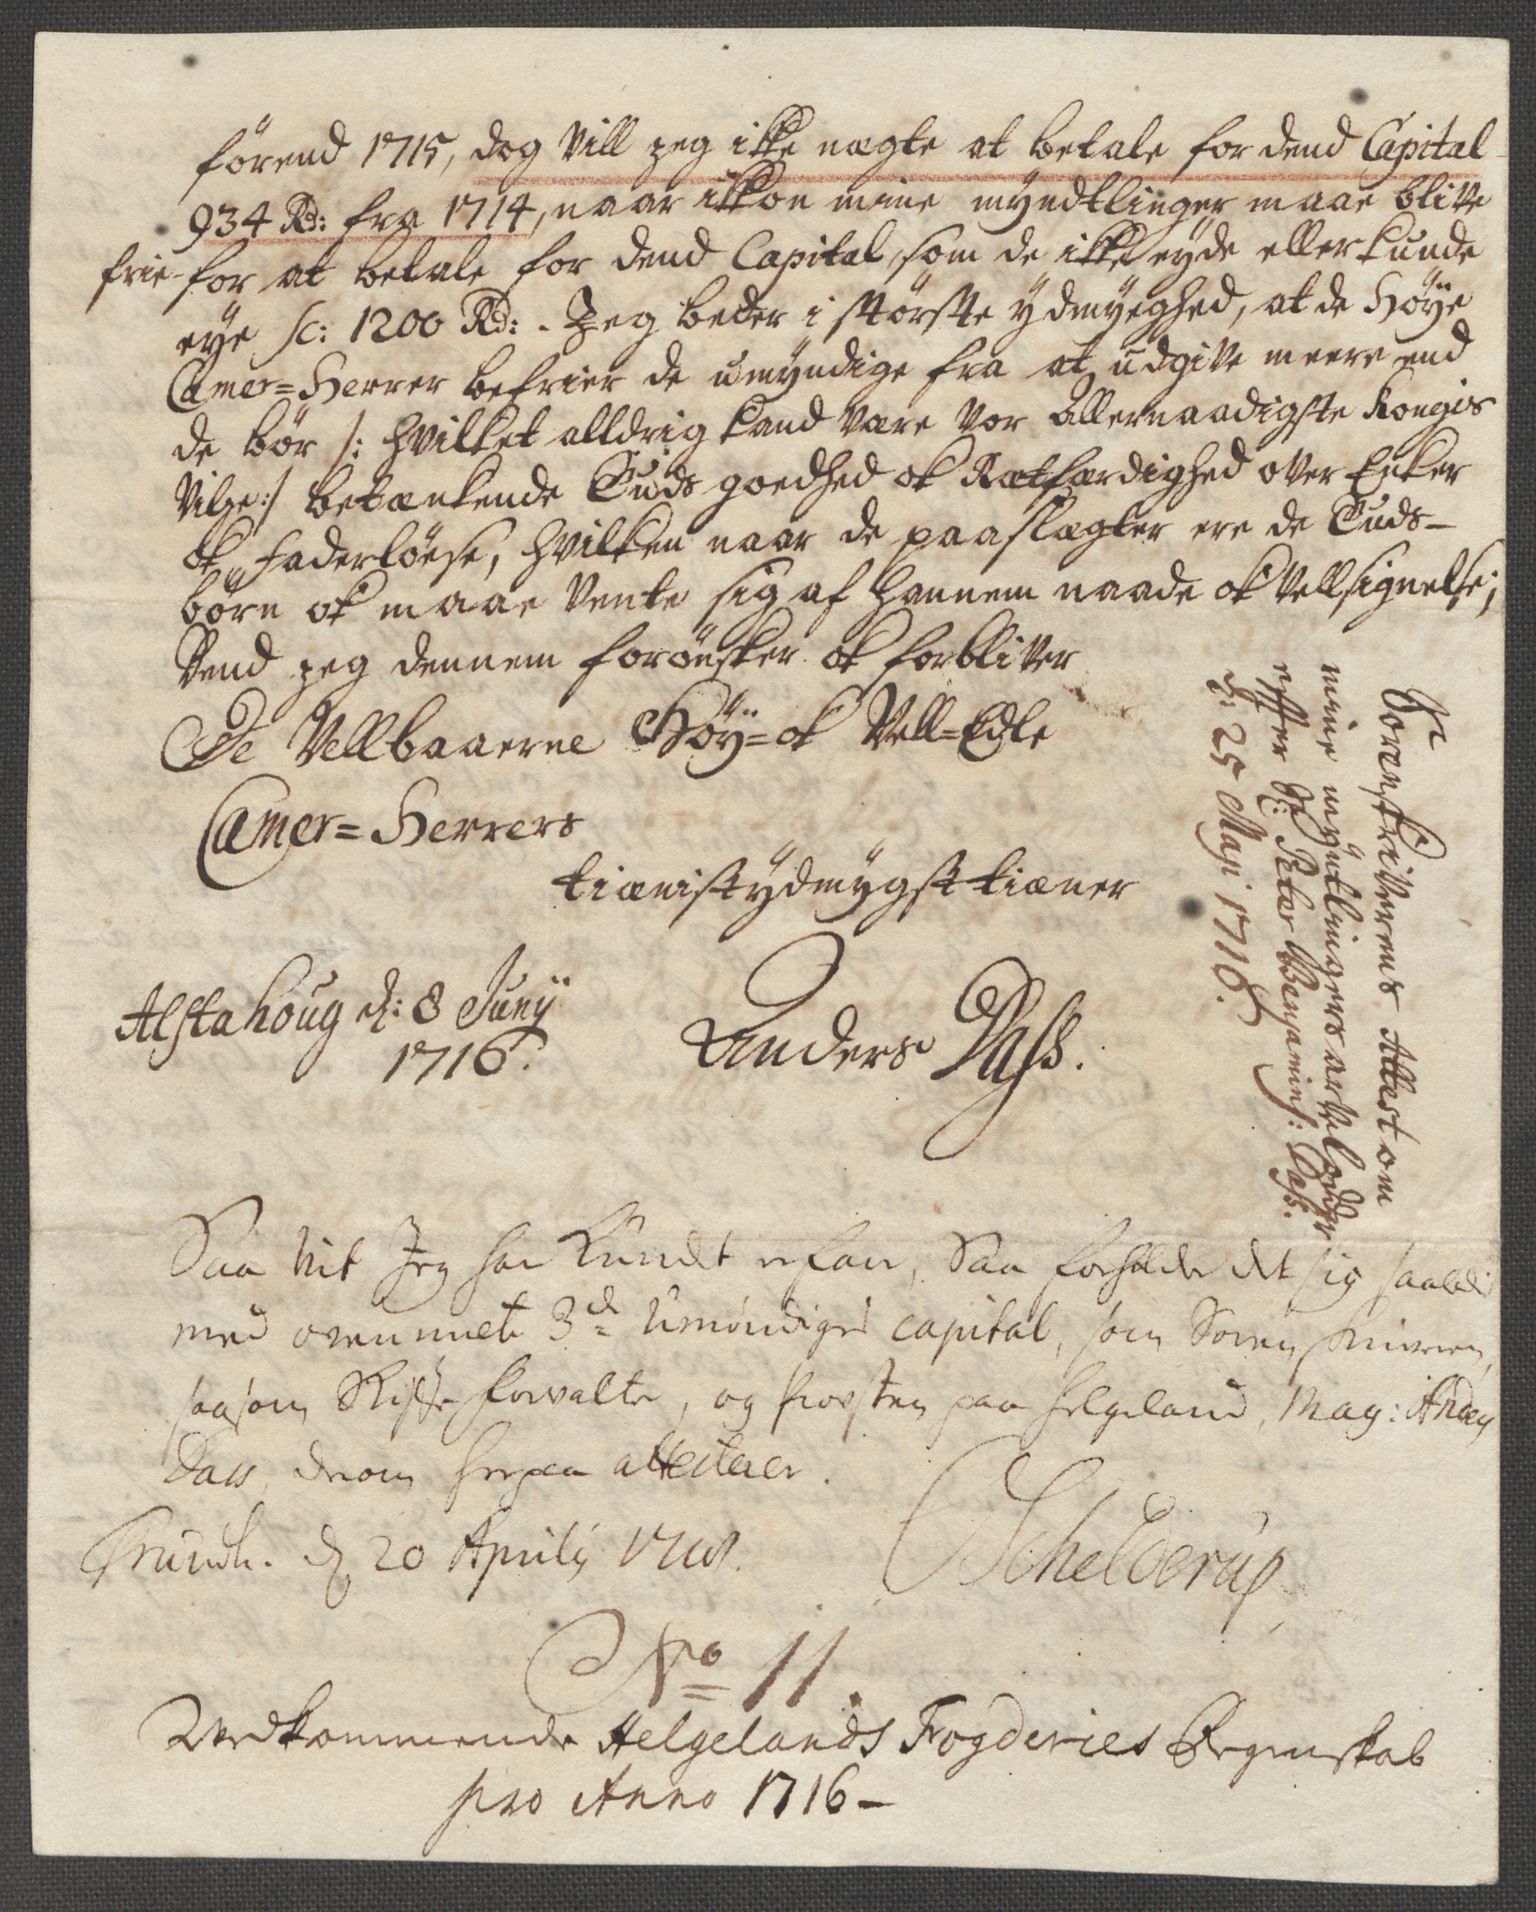 förend 1715, dog vill jeg ikke nægte at betale for dend Capital
934 Rd: fra 1714, naar ikkon mine myndtlinger maae blive
frie for at betale for dend Capital, som de ikke eyde eller kunde
eye sc: 1200 Rd: . Jeg beder i störste ydmyghed, at de Höye
Camer=Herrer befrier de umyndige fra at udgive meere end
de bör /: hvilket alldrig kand være vor allernaadigste Kongis
vilje :/ betænkende Guds goedhed ok Rætfærdighed over Enker
ok Faderlöese, hvilken naar de paaslægter ere de Guds-
börn ok maae vente sig af hannem naade ok vellsignelse;
Dend jeg dennem forönsker ok forbliver
De Vellbaaerne Höy= ok Vell=Edle
Camer=Herrers
tienistydmygst tiæner
Alstahoug d: 8 Junij
1716.
Anders Dass.
Sorenskriverens Attest om
mine myntlingers arvelodder
effter Hr: Petter Benjamins: Dass.
d: 25 Maji 1716.
Saa vit Jeg har kundet erfare, Saa forholder det sig saaledis
med ovenmelte 3de Umöndiges capital, som Soren skriveren,
saasom Skifte forvalter, og Provsten paa Helgeland, Mag: Anders
Dass, derom herpaa attesterer.
Trundh. d 20 Aprilij
Schelderup
No 11.
Vedkommende Helgelands Fogderies Regenskab
pro Anno 1716 -